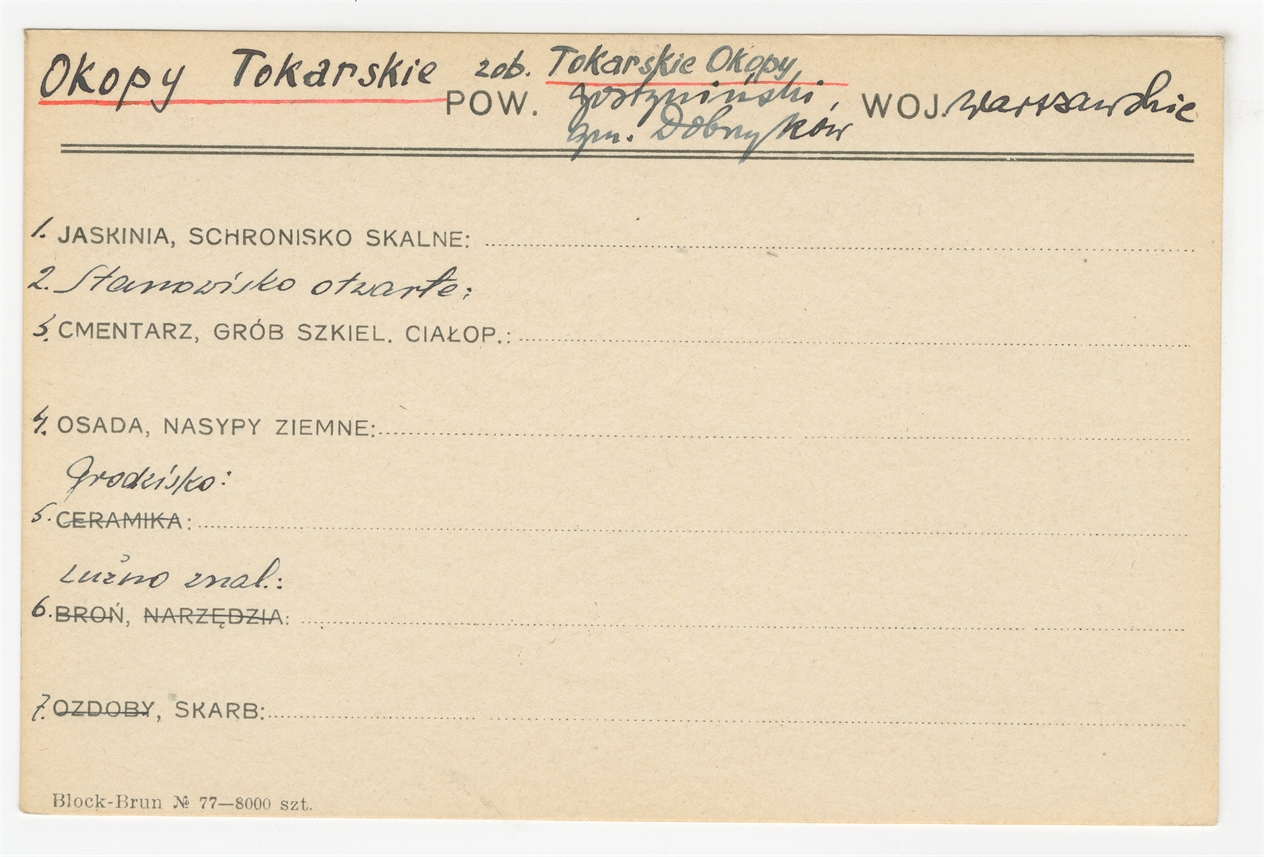 Okopy Tokarskie zob. Tokarskie Okopy
POW. gostyniński, WOJ. warszawskie
gm. Dobrzyków
1. JASKINIA, SCHRONISKO SKALNE:
2. Stanowisko otwarte:
3. CMENTARZ, GRÓB SZKIEL. CIAŁOP.:
4. OSADA, NASYPY ZIEMNE:
Grodzisko:
5. CERAMIKA:
Luźno znal.:
6. BROŃ, NARZĘDZIA:
7. OZDOBY, SKARB:
Block-Brun № 77—8000 szt.